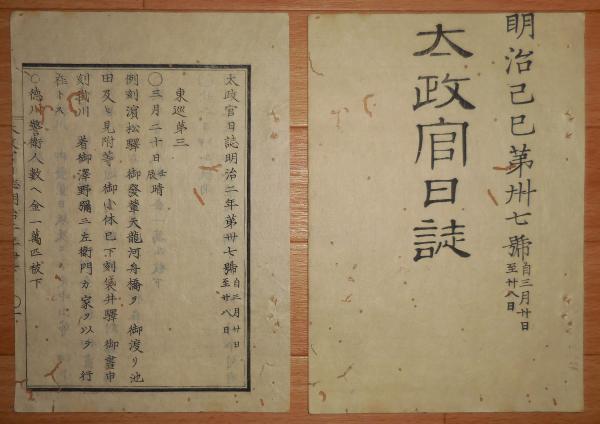 明治己巳第卅七號 自三月廿日至廿八日
太政官日誌
太政官日誌明治二年第卅七號 自三月廿日至廿八日
東巡第三
〇三月二十日壬辰晴
例刻濱松驛 御發輦天龍河舟橋ヲ 御渡リ池
田及ヒ見附等 御小休巳下刻袋井驛 御晝申
刻掛川 著御澤野彌三左衛門カ家ヲ以テ 行
在トス
〇德川警衛人數ヘ金一萬匹被下